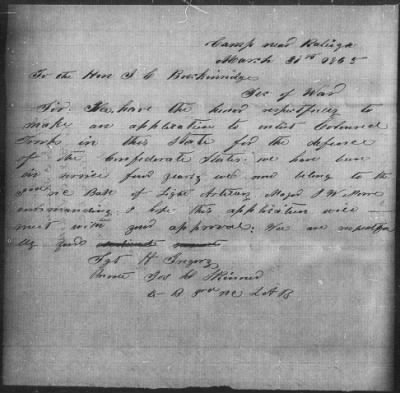 Camp near Raleigh
March 21st 1865
To the Hon J C Breckinridge
Sec of War
Sir. We have the honor respectfuly to
make an application to enlist Coloured
troops in this State for the defence
of the Confederate States. we have been
in service four years and now belong to the
NC Batt of Light Artilery Major J W Moore
commanding. I hope this application will
meet with your approval. We are respectfu
lly yours
Sgt H
Jos H Skinner
Co B 3rd NC L A B